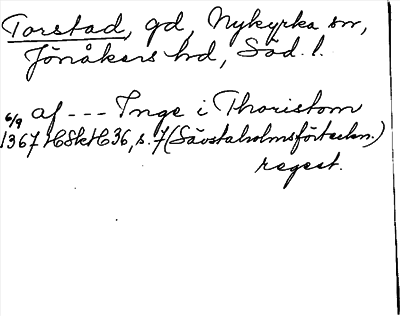 Torstad, gd, Nykyrka sn,
Jönåkers hd, Söd. l.
6/9 af --- Inge i Thoristom
1367 HSkH 36, s. 7 (Sävstaholmsförteckn.)
regest.